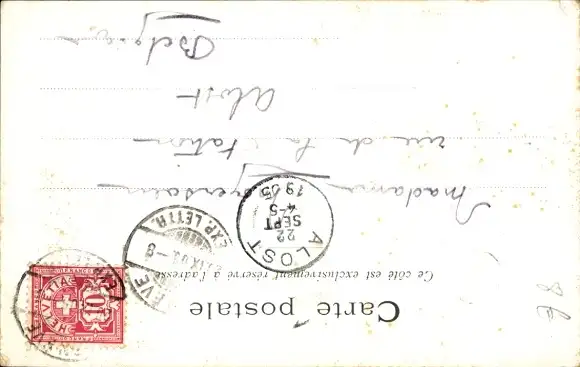 Carte postale
Ce côté est exclusivement réservé à l'adresse
ALOST
22
SEPT
4-5
1905
EXP. LETTR.
HELVETIA
FRANCO
10
Madame
rue de la Station
Alost
Belgique